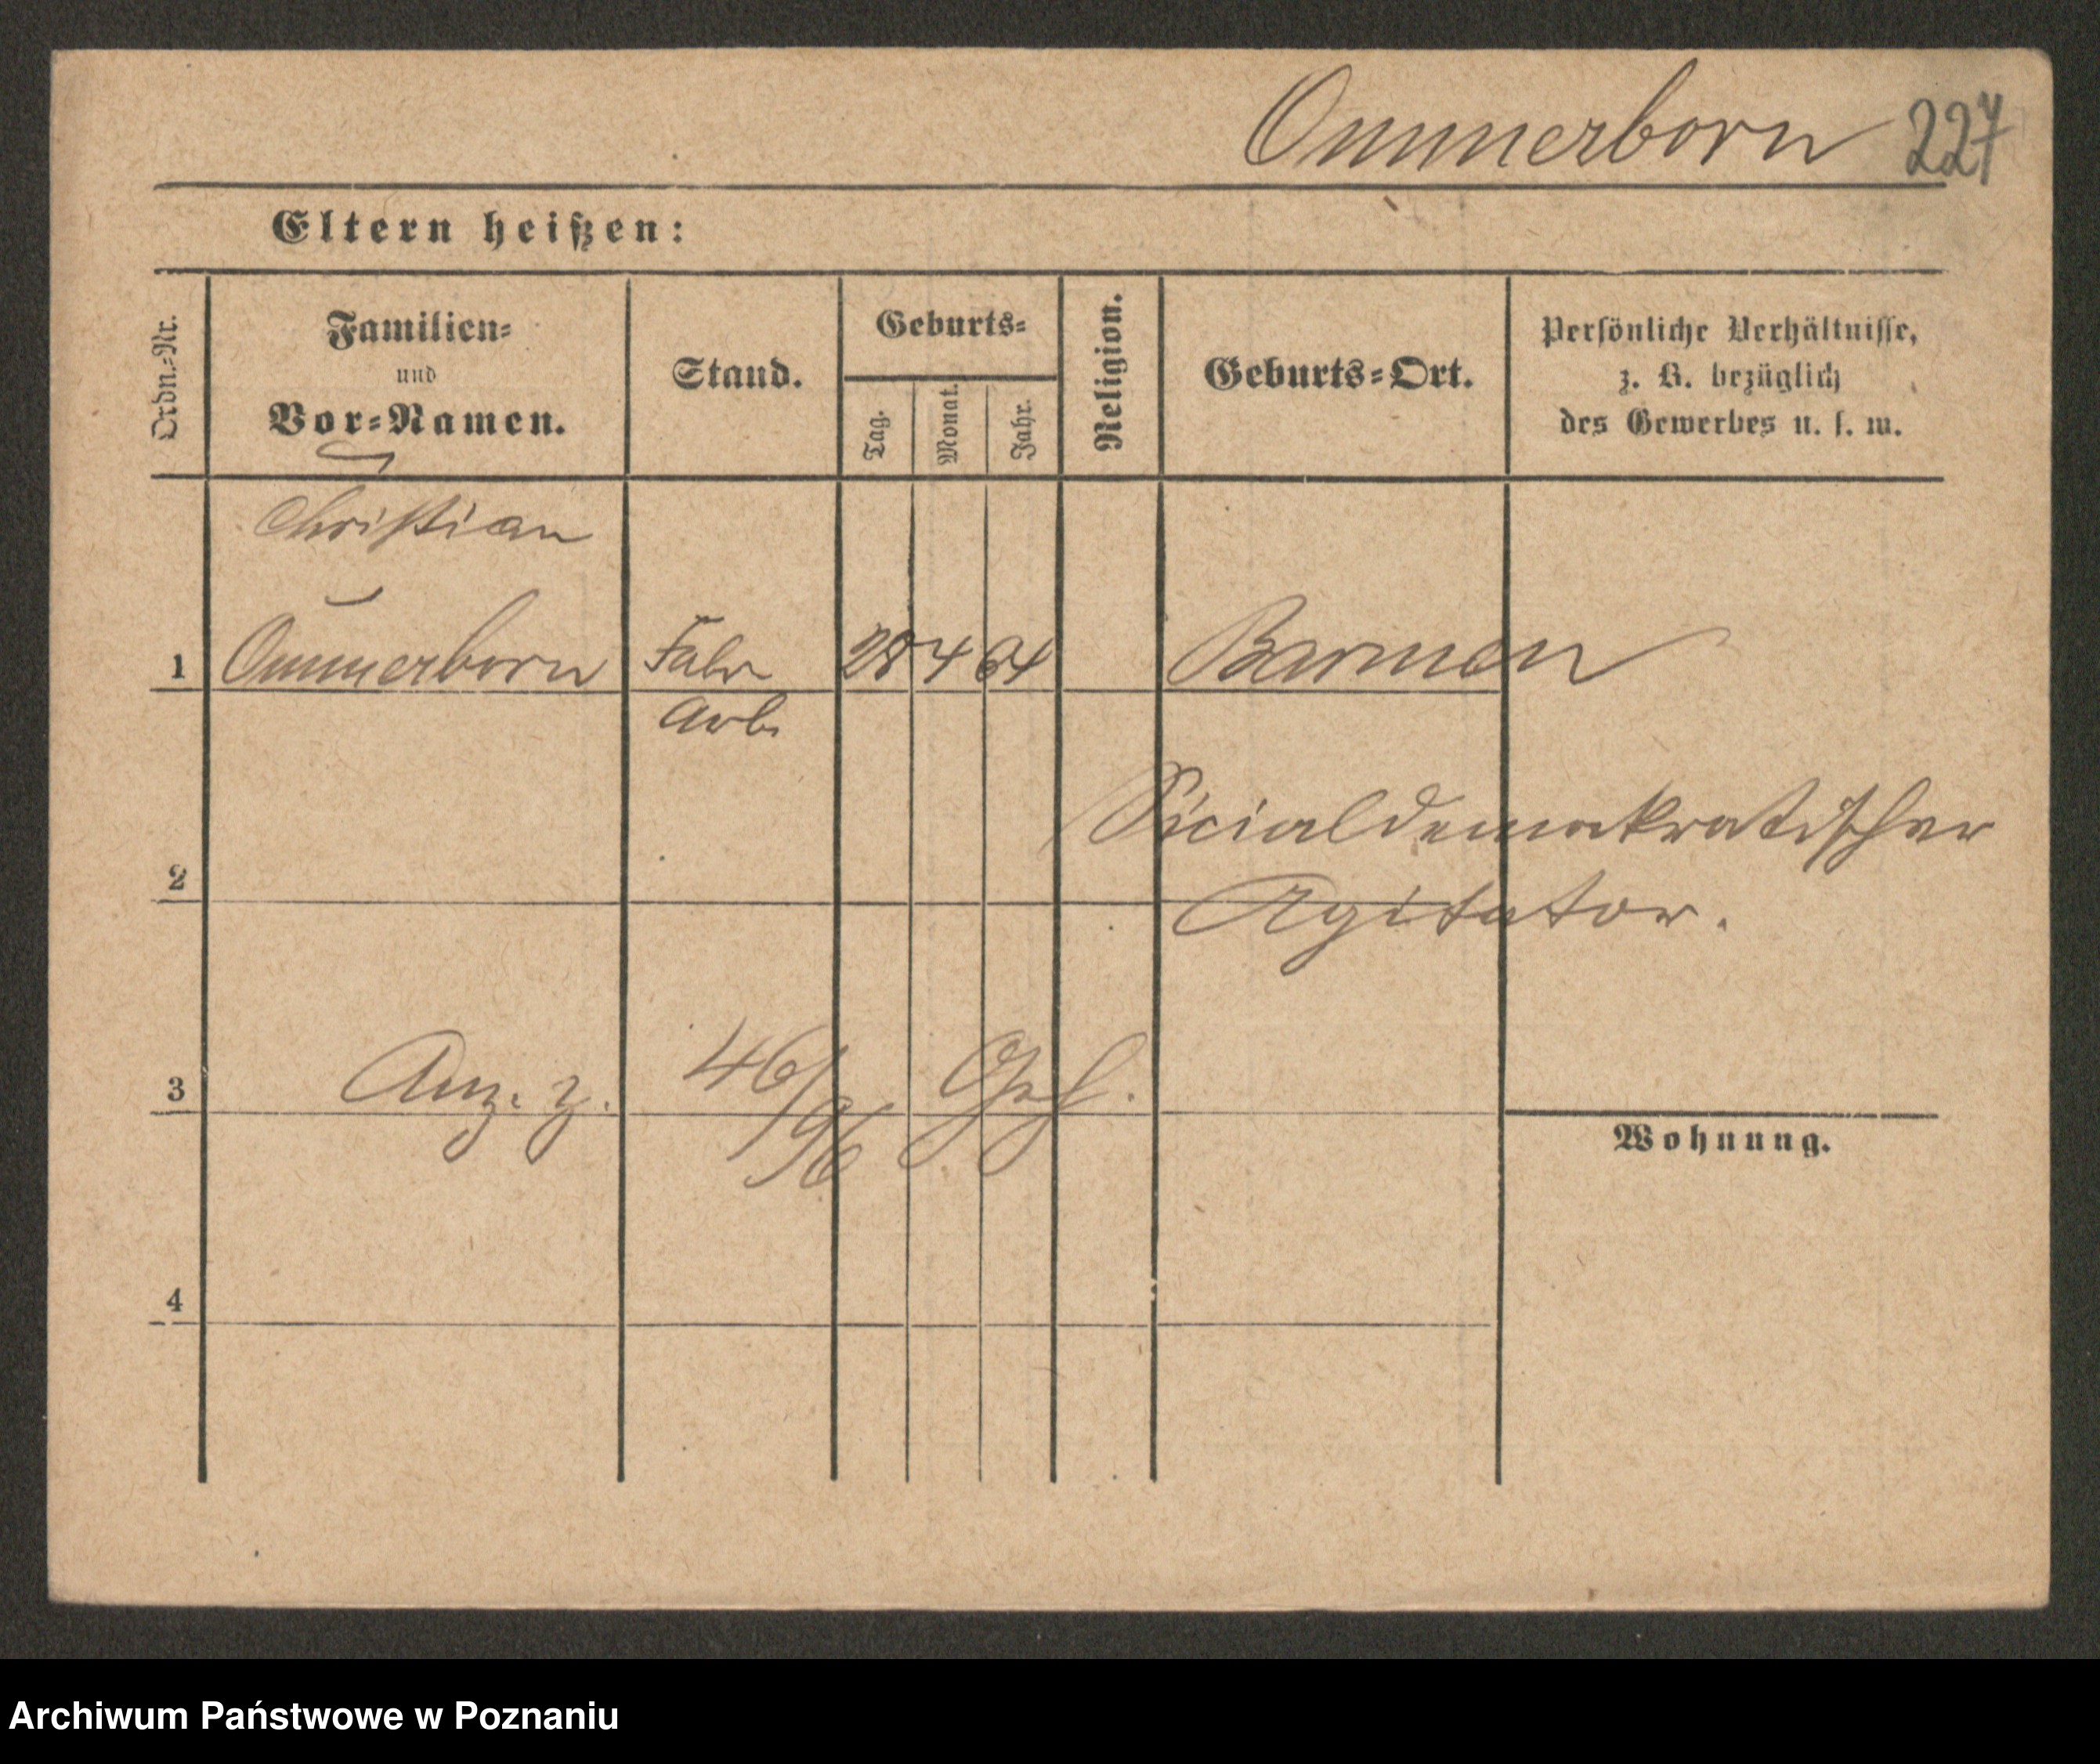 Ommerborn 227
Eltern heißen:
Ordn.=Nr.
Familien=
und
Vor=Namen.
Stand.
Geburts=
Tag.
Monat.
Jahr.
Religion.
Geburts=Ort.
Persönliche Verhältnisse,
z. B. bezüglich
des Gewerbes u. s. w.
Christian
1 Ommerborn Fabr 28 4 64 Barmen
Arb.
Socialdemokratischer
2
Agitator.
3 Anz. z. 46/96 Gef.
Wohnung.
4
Archiwum Państwowe w Poznaniu